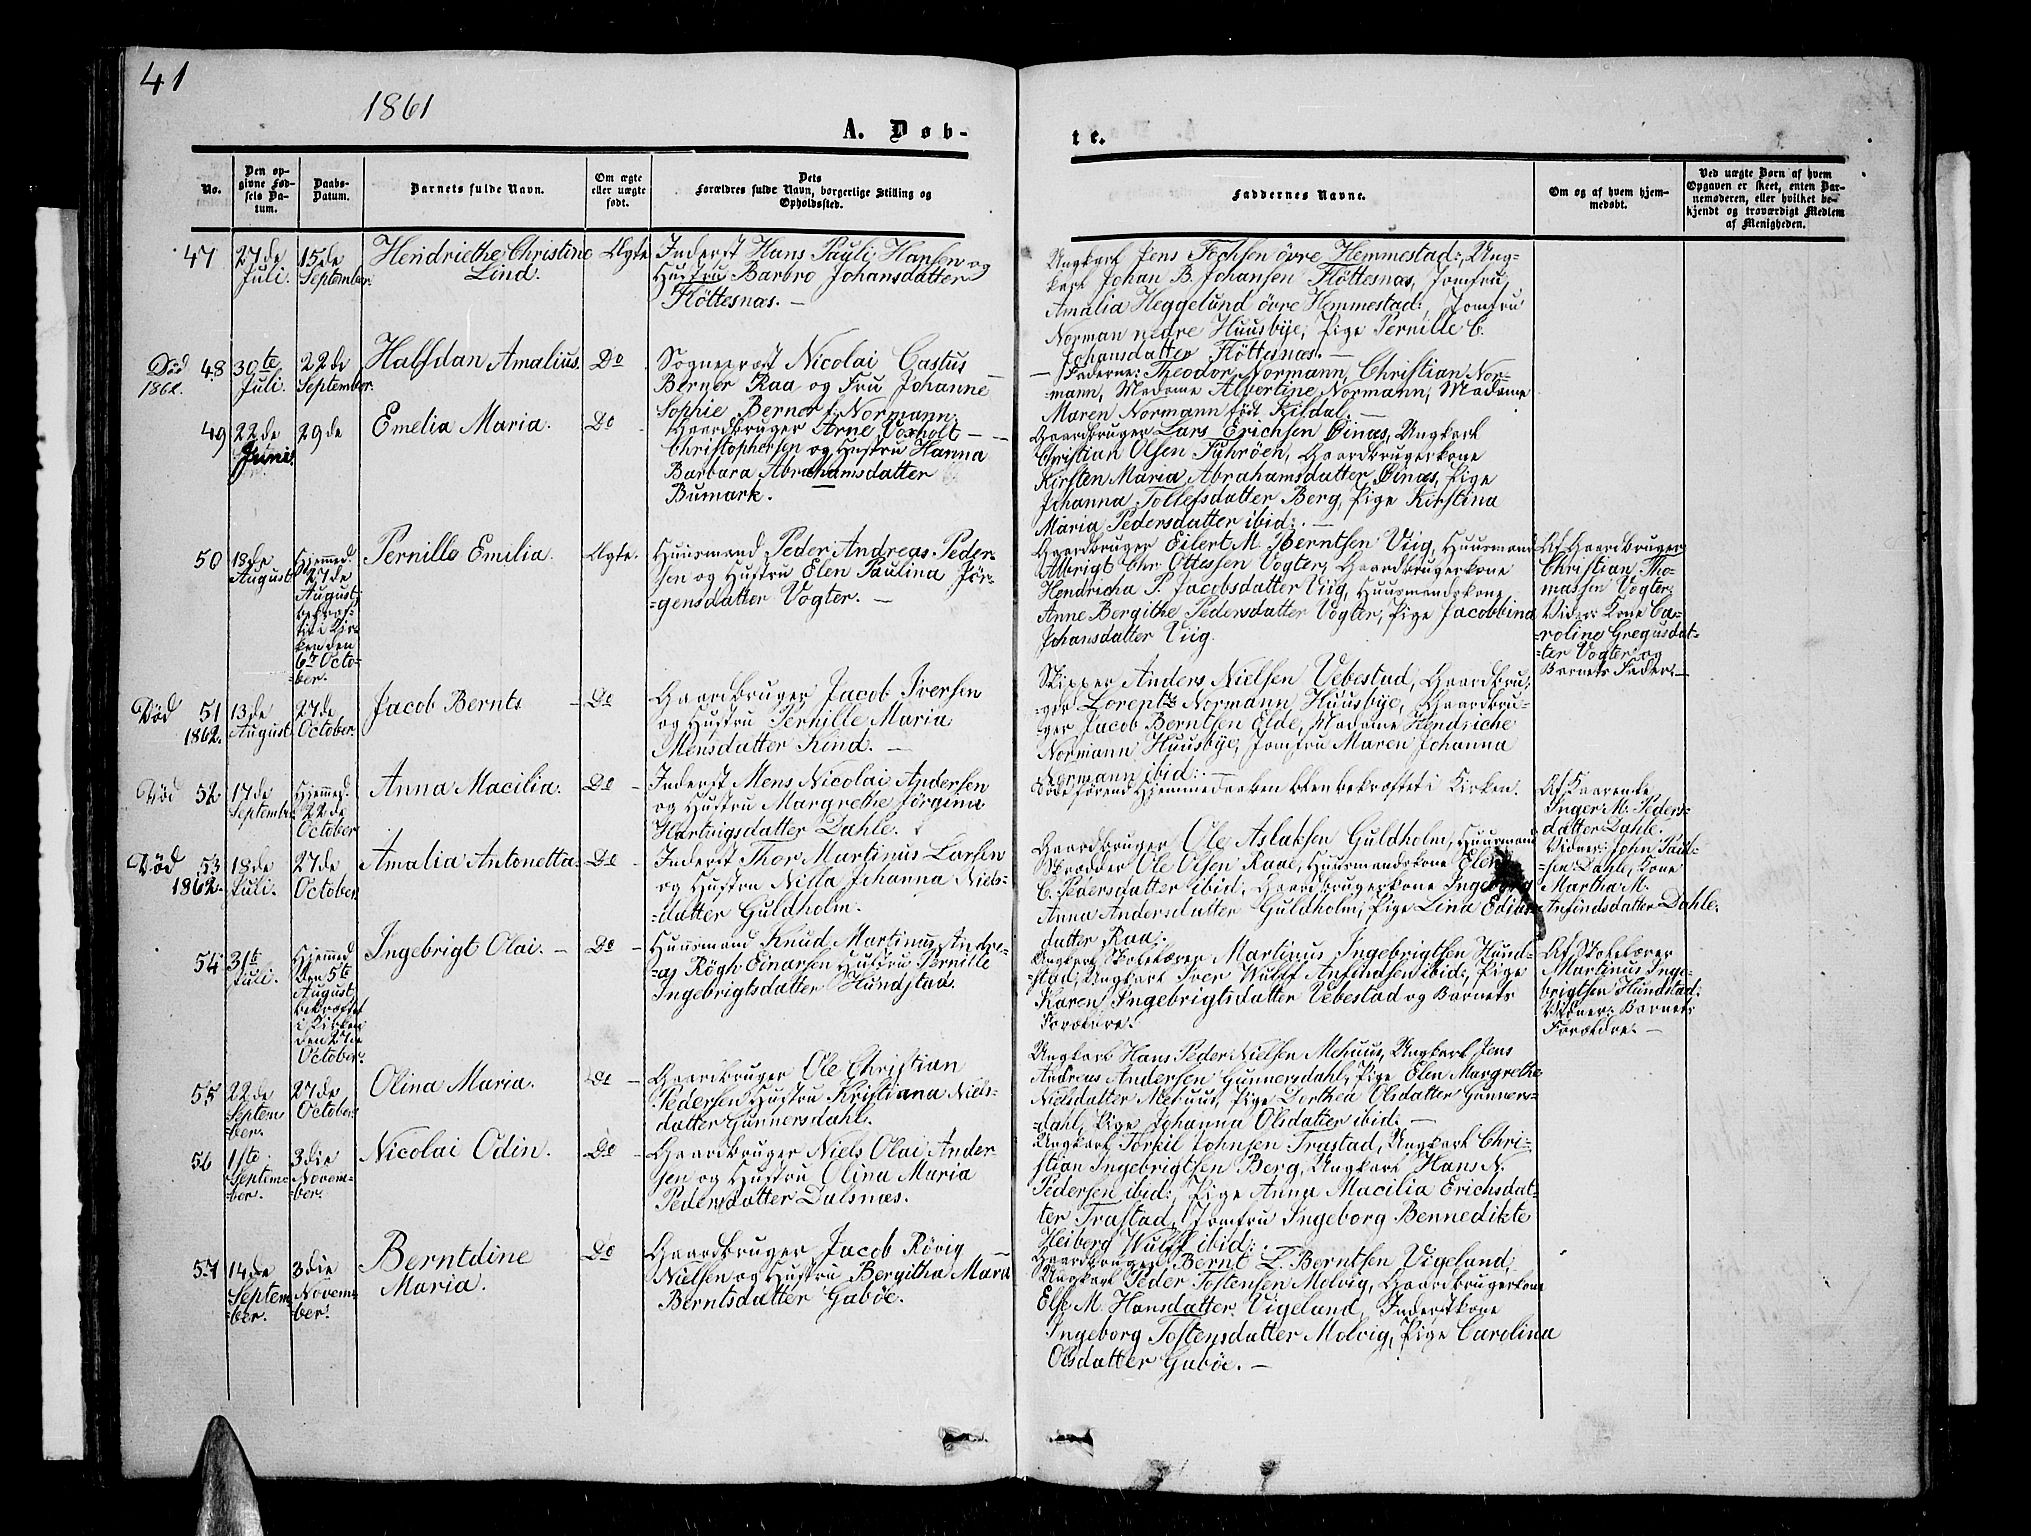 41
1861
A. Døb-
te.
No.
Den op-
givne Fød-
sels Da-
tum.
Daabs-
Datum.
Barnets fulde Navn.
Om ægte
eller uægte
født.
Dets
Forældres fulde Navn, borgerlige Stilling og
Opholdssted.
Faddernes Navne.
Om og af hvem hjem-
medøbt.
Ved uægte Børn af hvem
Opgaven er skeet, enten Bar-
nemoderen, eller hvilket be-
kjendt og troværdigt Medlem
af Menigheden.
47
27de
Juli.
15de
September.
Hendriethe Christine
Lind.
Ægte
Inderst Hans Pauli Hansen og
Hustru Barbro Johansdatter
Fløttesnæs. —
Ungkarl Jens Fochsen øvre Hemmestad:, Ung-
karl Johan B. Johansen Fløttesnæs, Jomfru
Amalia Heggelund øvre Hemmestad:, Jomfru
Norman nedre Huusbye, Pige Pernille C.
Johansdatter Fløttesnæs. —
Død
1862.
48
30te
Juli.
22de
September.
Halfdan Amalius.
Do
Sogneprest Nicolai Castus
Berner Raa og Fru Johanne
Sophie Berner f. Normann.
— Faderne: Theodor Normann, Christian Nor-
mann, Madame Albertine Normann, Madame
Maren Normann født Kildal. —
49
22de
Juni.
29de
Emelia Maria.
Do
Gaardbruger Arne Voxholt —
Christophersen og Hustru Hanna
Barbara Abrahamsdatter
Bumark.
Gaardbruger Lars Erichsen Øinæs, Ungkarl
Christian Olsen Fuhrøen, Gaardbrugerkone
Kirsten Maria Abrahamsdatter Øinæs, Pige
Johanna Tollefsdatter Berg, Pige Kirstina
Maria Pedersdatter ibid:. —
50
18de
August
Hjemmed.
27de
August
bekræf-
tet i Kir-
ken den
6te Octo-
=ber.
Pernille Emilia.
Ægte.
Huusmand Peder Andreas Peder-
sen og Hustru Elen Paulina Jør-
=gensdatter Vogter. —
Gaardbruger Eilert M. Berntsen Viig, Huusmand
Albrigt Chr. Ottessen Vogter, Gaardbrugerkone
Hendricha P. Jacobsdatter Viig, Huusmandskone
Anne Bergithe Pedersdatter Vogter, Pige Jacobbina
Johansdatter Viig.
Af Gaardbruger
Christian Tho-
massen Vogter.
Vidner: Kone Ca-
roline Gregusdat-
=ter Vogter og
Barnets Fader. —
Død
1862.
51
13de
August
27de
October.
Jacob Bernts
Do
Gaardbruger Jacob Iversen
og Hustru Pernille Maria
Mensdatter Kind. —
Skipper Anders Nielsen Vebestad, Gaardbru-
=ger Lorentz Normann Huusbye, Gaardbru-
ger Jacob Berntsen Elde, Madame Hendriche
Normann Huusbye, Jomfru Maren Johanna
Normann ibid:. —
Død
52
17de
September
Hjemmed.
22de
October
Anna Macilia.
Do
Inderst Mens Nicolai Andersen
og Hustru Margrethe Jørgina
Hartvigsdatter Dahle.
Døde førend Hjemmedaaben blev bekræftet i Kirken.
Af Kaarende
Inger M. Peders-
datter Dahle.
Vidner: John Paul-
=sen Dahle, Kone
Martha M.
Anfindsdatter Dahle.
Død
1862.
53
18de
Juli.
27de
October.
Amalia Antonetta.
Do
Inderst Thor Martinus Larsen
og Hustru Nilla Johanna Niels-
=datter Guldholm.
Gaardbruger Ole Aslaksen Guldholm, Huusmand
Skrædder Ole Olsen Raae, Huusmandskone Elen
C. Pedersdatter ibid, Gaardbrugerkone Ingeborg
Anna Andersdatter Guldholm, Pige Lina
datter Raa:.
54
31te
Juli.
Hjemmed
den 5te
August
bekræftet
i Kirken
den 27de
October.
Ingebrigt Olai. —
Do
Huusmand Knud Martinus Andre-
=as Røgh Einarsen Hustru Pernille
Ingebrigtsdatter Hundstad.
Ungkarl Skolelærer Martinus Ingebrigtsen Hund-
=stad, Ungkarl Iver Wulff Anfindsen ibid:, Pige
Karen Ingebrigtsdatter Vebestad og Barnets
Forældre.
Af Skolelærer
Martinus Inge-
brigtsen Hundstad.
Vidner: Barnets
Forældre. —
55
22de
Septem
=ber.
27de
October.
Olina Maria.
Do
Gaardbruger Ole Christian
Pedersen Hustru Kristiana Niels-
datter Gunnersdahl.
Ungkarl Hans Peder Nielsen Mehuus, Ungkarl Jens
Andreas Andersen Gunnersdahl, Pige Elen Margrethe
Nielsdatter Mehuus, Pige Dorthea Olsdatter Gunners-
=dahl, Pige Johanna Olsdatter ibid:. —
56
1ste
Septem-
=ber.
3die
Novem-
=ber.
Nicolai Odin.
Do
Gaardbruger Niels Olai Ander-
sen og Hustru Olina Maria
Pedersdatter Dalsnæs.
Ungkarl Torkil Johnsen Trastad, Ungkarl Chri-
stian Ingebrigtsen Berg, Ungkarl Hans N.
Pedersen ibid:, Pige Anna Macilia Erichsdat-
ter Trastad, Jomfru Ingeborg Bennedikte
Heiberg Wulff ibid:.
57
14de
Septem-
ber.
3die
Novem-
=ber.
Berntdine
Maria.
Do
Gaardbruger Jacob Rørig —
Nielsen og Hustru Bergitha Mara
Berntsdatter Gabøe.
Gaardbruger Bernt L. Berntsen Vigeland,
Ungkarl Peder Tostensen Molvig, Gaardbrugerkone
Else M. Hansdatter Vigeland, Inderstkone
Ingeborg Tostensdatter Molvig, Pige Carolina
Olsdatter Gabøe. —